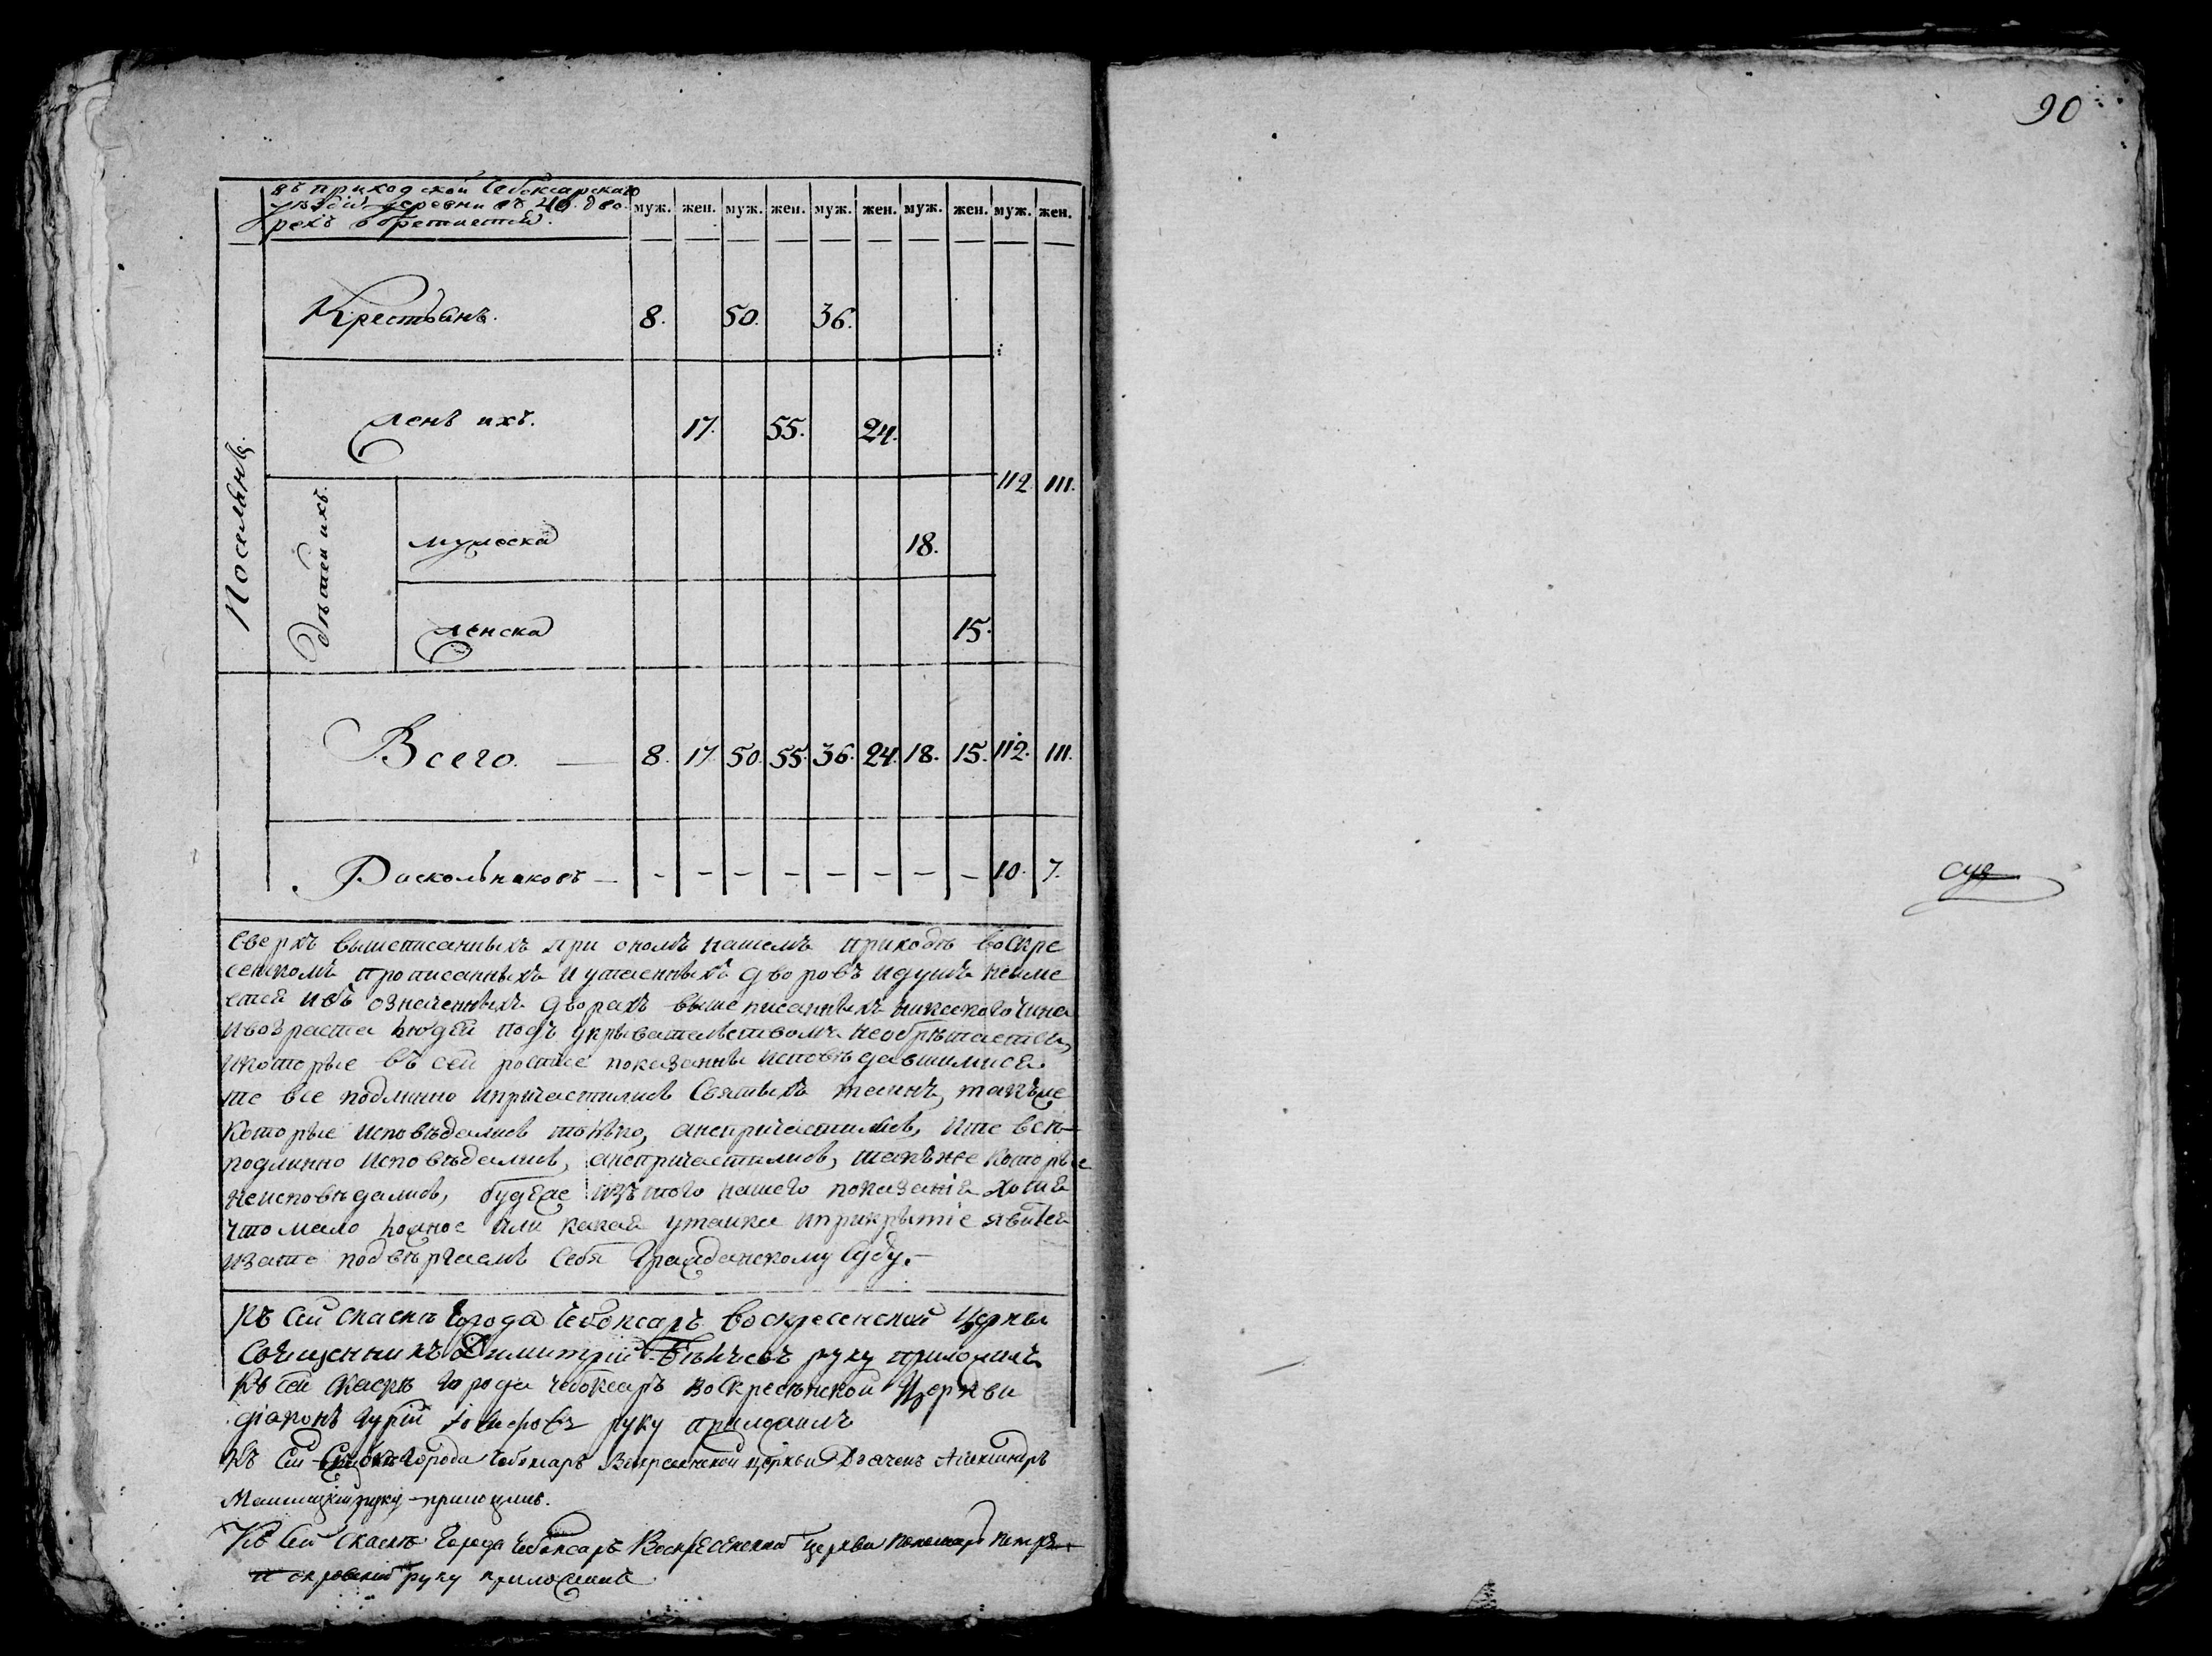 90
въ приходской Чебоксарскаго
уѣзда деревни въ 40. дво
рехъ обретается.
муж. жен. муж. жен. муж. жен. муж. жен. муж. жен.
Поселянъ
Крестьянъ. 8. 50. 36.
Женъ ихъ. 17. 55. 24.
112. 111.
Дѣтей ихъ.
мужеска 18.
женска 15.
Всего. — 8. 17. 50. 55. 36. 24. 18. 15. 112. 111.
Раскольниковъ — - - - - - - - - 10. 7.
Сверхъ вышеписанныхъ при ономъ нашемъ приходѣ воскре
сенскомъ прописанныхъ и утаенныхъ дворовъ и душъ неиме
ется и въ означенныхъ дворахъ вышеписанныхъ никакого чина
и возраста людей подъ укрывательствомъ необрѣтается,
и которые въ сей росписе показаны исповѣдавшимися
те все подлинно и причастились Святыхъ таинъ, такъже
которые исповѣдались только, а непричастились, и те все
подлинно исповѣдались, а непричастились, также которые
неисповѣдались, будеже изъ того нашего показанія хотя
что мало ложное или какая утайка и прикрытіе явится
и зато подвѣргаемъ себя Гражданскому Суду.—
Къ сей скаскѣ Города Чебоксаръ Воскресенской Церкви
Священникъ Димитрій руку приложилъ
Къ сей скаскѣ Города Чебоксаръ Воскресенской Церкви
діаконъ Гурій руку приложилъ
Къ сей Города Чебоксаръ Воскресенской церкви Дьячекъ Александръ
руку приложилъ.
Къ сей скаскѣ Города Чебоксаръ Воскресенской Церкви пономарь Петръ
руку приложилъ